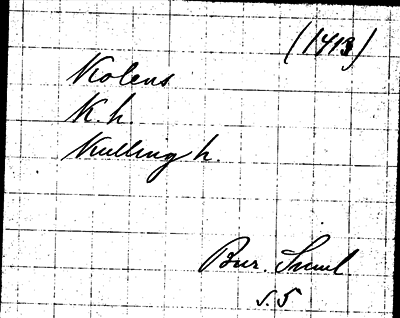 (1413)
Kolens
K. h.
Kulling h.
Bur. Smml
s. 5